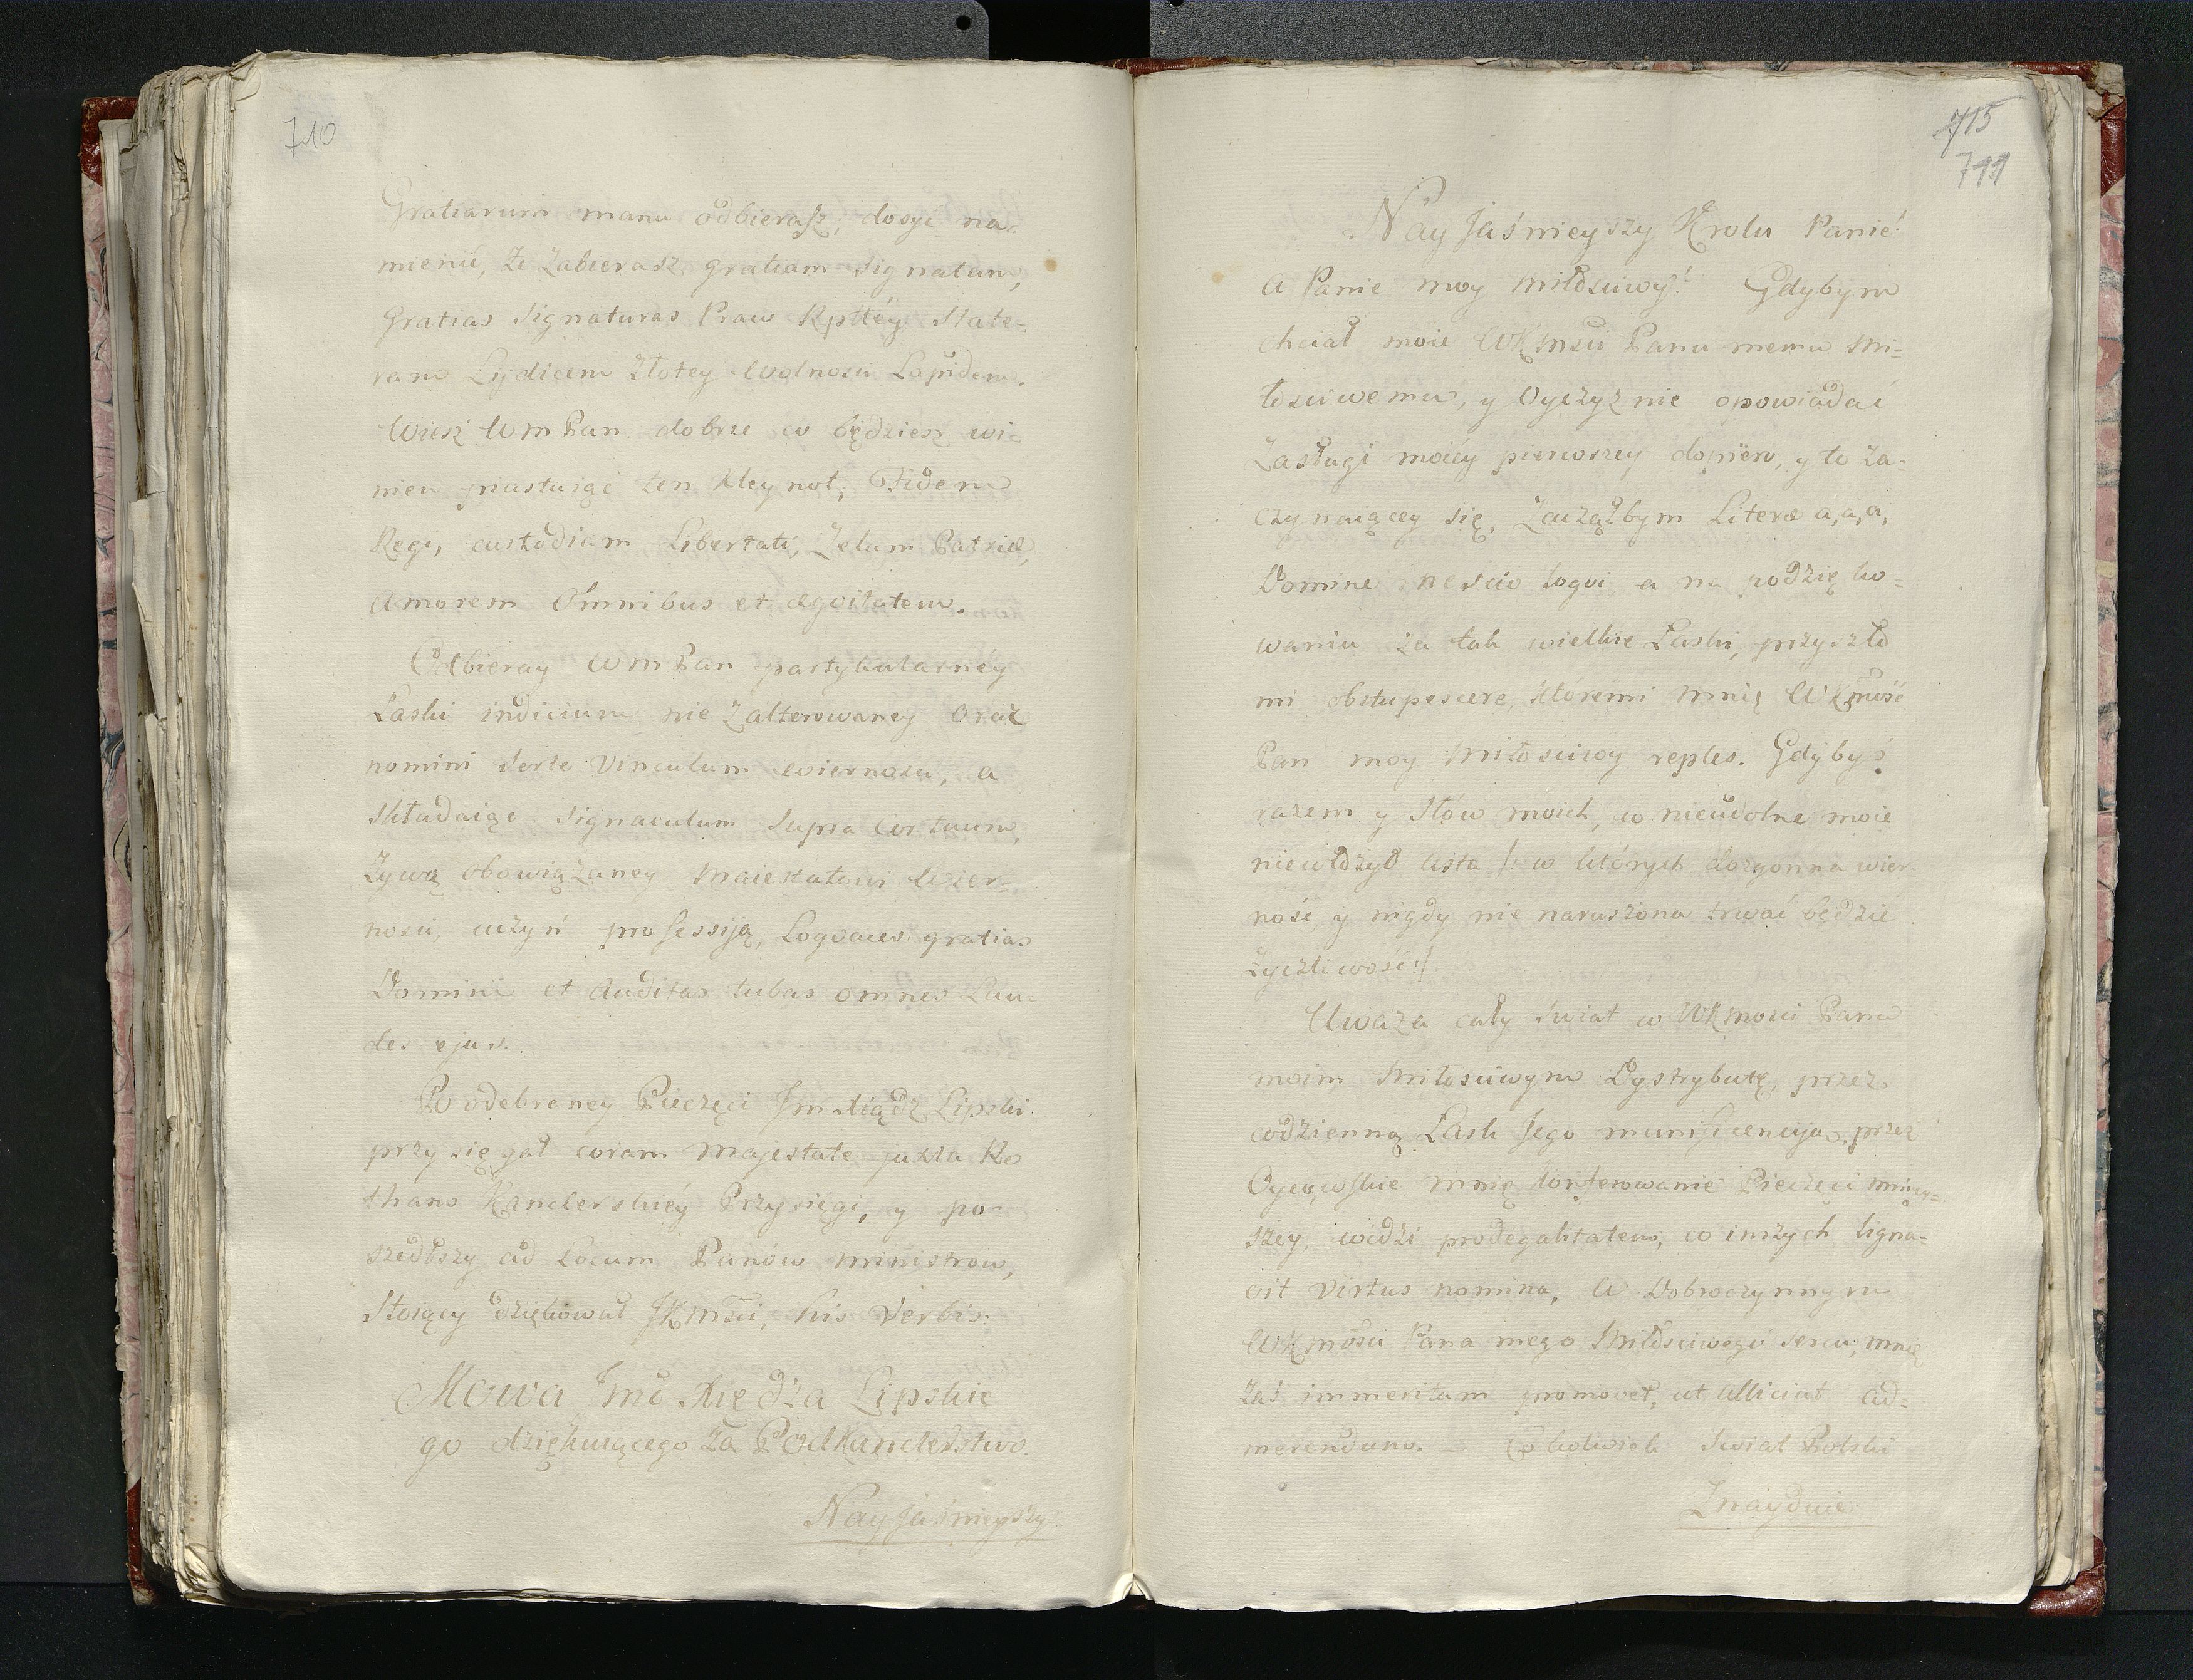 710
Gratiarum manu odbierasz; dosyć na=
mienić, że zabierasz gratiam signatam,
gratias signaturas Praw Rptey State=
ram Lydicem złotey Wolności Lapidem.
Wiesz WmPan dobrze co będziesz wi=
nien piastuiąc ten kleynot, Fidem
Regi, custodiam Libertati, zelum Patriæ,
amorem Omnibus et æqvitatem.
Odbieray WmPan partykularney
Łaski indicium nie zalterowaney oraz
nomini Serto Vinculum wierności, a
składaiąc Signaculum Supra Cor tuum,
żywą obowiązaney Maiestatowi Wier=
ności, uczyń professiją, Loqvaces gratias
Domini et auditas tubas omnes Lau=
des ejus.
Po odebraney Pieczęci Jm Xiądz Lipski
przysięgał coram Majestate juxta Ro
thano Kanclerskiéy Przysięgi, y po=
szedszy ad Locum Panów Ministrow,
Stoiący dziękował JKmści, his Verbis:
Mowa Jmo Xiędza Lipskie
go dziękuiącego za PodKanclerstwo.
NayJaśnieyszy
715
711
NayJaśnieyszy Krolu Panie!
a Panie moy miłościwy! Gdybym
chciał moie WKmści Panu memu Mi=
łościwemu, y Oyczyznie opowiadać
Zasługi moiéy pierwszey dopiero, y to za=
czynaiącey się, zacząłbym Literæ a, a, a,
Domine nescio loqvi a na podzięko=
waniu za tak wielkie Łaski, przyszło
mi obstupescere, któremi mnię WKmość
Pan moy Miłościwy reples. Gdybyś
razem y słów moich, w nieudolne moie
niewłożył usta /: w których dozgonna wier=
ność, y nigdy nie naruszona trwać będzie
życzliwość :/
Uważa cały świat w WKmości Panu
moim Miłościwym Dystrybutę, przez
codzienną Łask Jego munificencyją, przez
Oycowskie mnię konferowanie Pieczęci mniey=
szey, widzi prodegalitatem, w inszych signa=
vit Virtus nomina, w Dobroczynnym
WKmości Pana mego Miłościwego sercu, mnię
zaś immeritum promovet, ut alliciat ad=
merendum. — Cokolwiek świat Polski
Znayduie